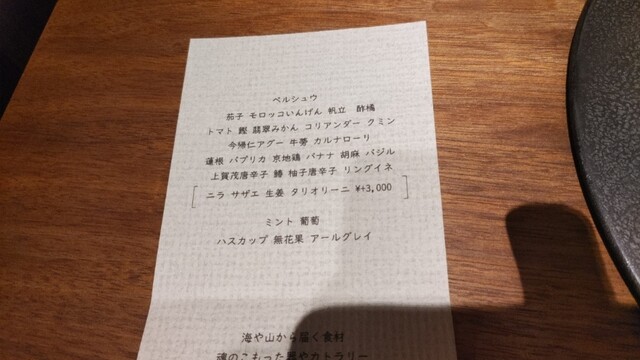 ペルシュウ
茄子 モロッコいんげん 帆立 酢橘
トマト 鰹 翡翠みかん コリアンダー クミン
今帰仁アグー 牛蒡 カルナローリ
蓮根 パプリカ 京地鶏 バナナ 胡麻 バジル
上賀茂唐辛子 鱧 柚子唐辛子 リングイネ
ニラ サザエ 生姜 タリオリーニ ¥+3,000
ミント 葡萄
ハスカップ 無花果 アールグレイ
海や山から届く食材
魂のこもった器やカトラリー